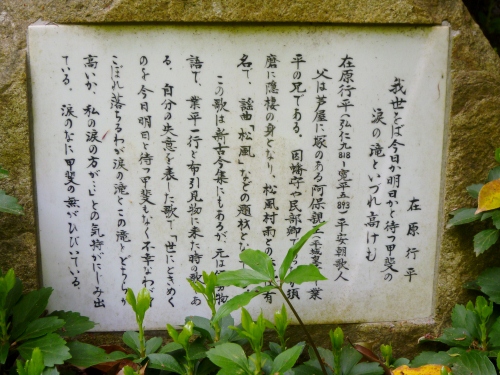 在原行平
我世をば今日か明日かと待つ甲斐の
涙の滝といづれ高けむ
在原行平(弘仁九818〜寛平五893)平安朝歌人
父は芦屋に塚のある阿保親 (平城皇 業
平の兄である。因幡守や民部卿 が須
磨に隠棲の身となり、松風村雨との 有
名で、謡曲「松風」などの題材と
この歌は新古今集にもあるが、元は 物
語で、業平一行と布引見物に来た時の歌 あ
る。自分の失意を表した歌で、世にときめく
のを今日明日と待つ甲斐もなく不幸なわが
こぼれ落ちるわが涙の滝とこの滝、どちらが
高いか、私の涙の方が…との気持がにじみ出
ている。涙のなに甲斐の無がひびいている。